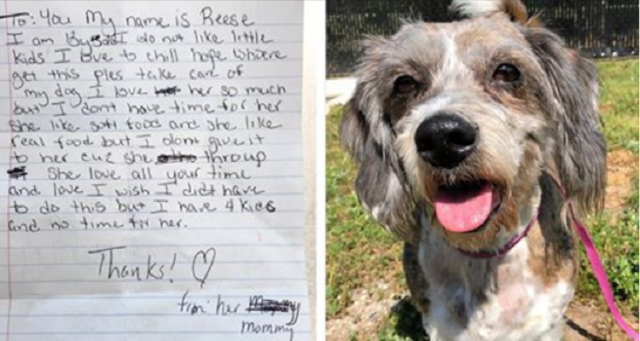 To: You My name is Reese
I am 6ys old I do not like little
kids I love to chill hope who ere
get this ples take care of
my dog I love her so much
but I dont have time for her
she like soft food and she like
real food but I dont give it
to her cuz she throup
She love all your time
and love I wish I didt have
to do this but I have 4 kids
and no time for her.
Thanks! ♡
from her
mommy